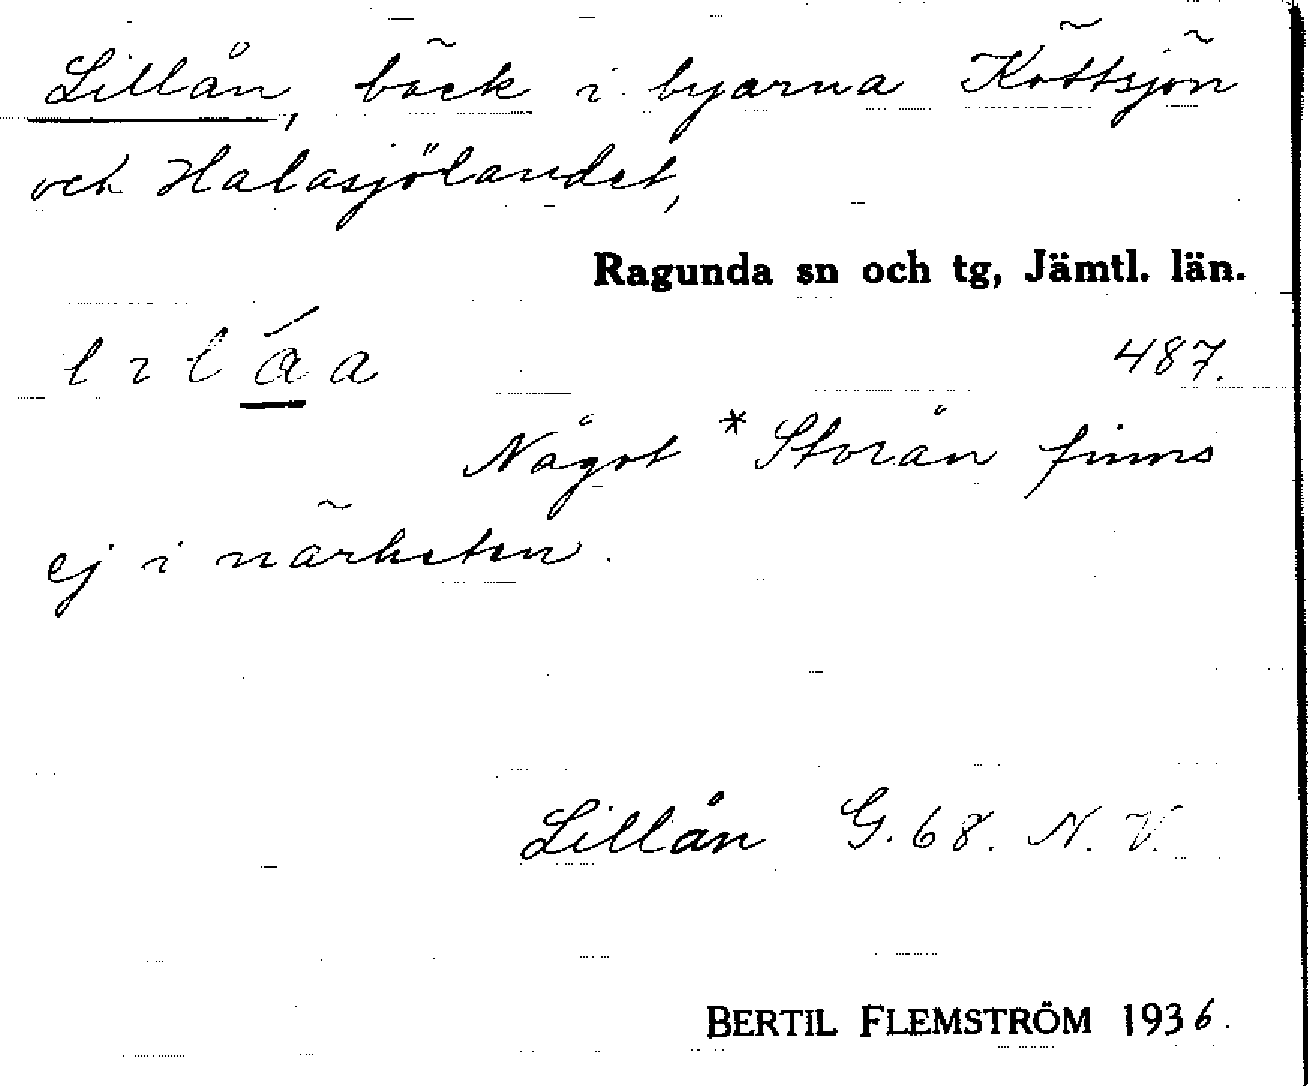 Lillån, bäck i byarna Köttsjön
och Halasjölandet,
Ragunda sn och tg, Jämtl. län.
487.
Något *Storån finns
ej i närheten.
Lillån G. 68. N. V.
BERTIL FLEMSTRÖM 1936.